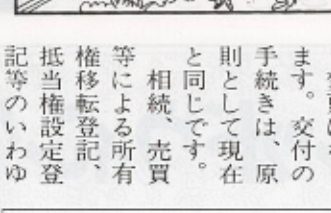 ます。交付の
手続きは、原
則として現在
と同じです。
相続、売買
等による所有
権移転登記、
抵当権設定登
記等のいわゆ